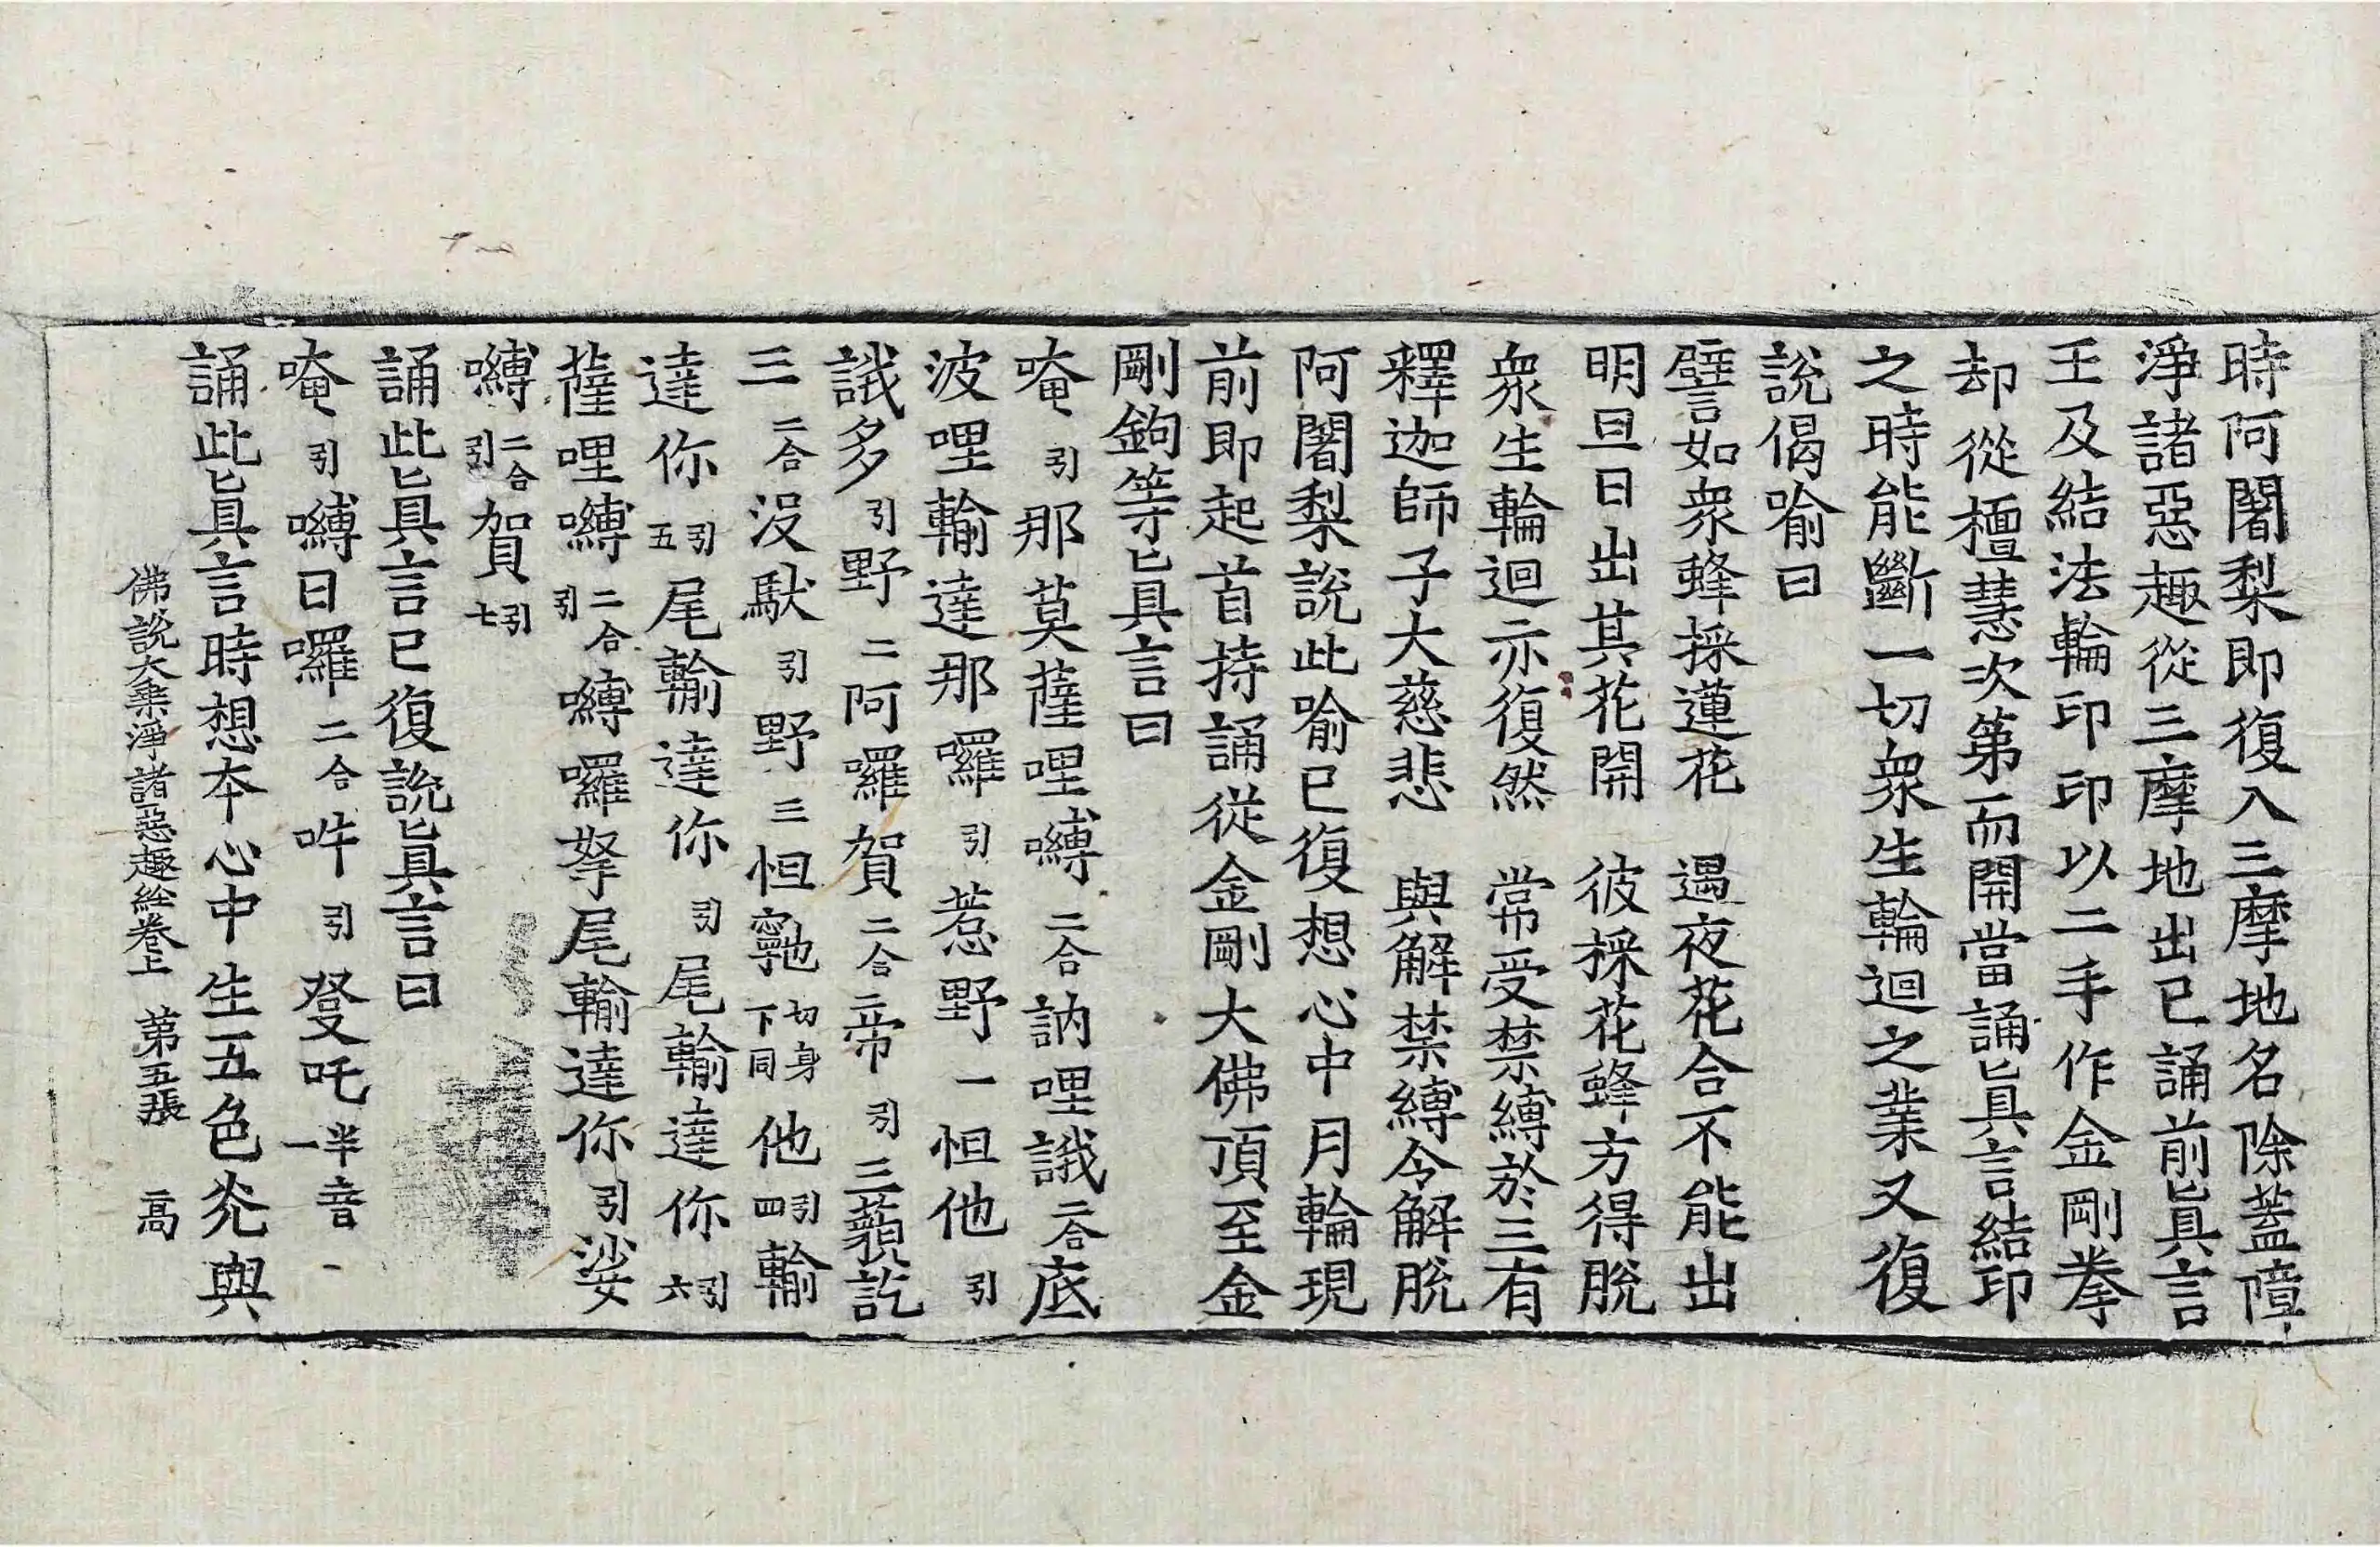 時阿闍梨即復入三摩地名除蓋障
淨諸惡趣從三摩地出已誦前眞言
王及結法輪印印以二手作金剛拳
却從檀慧次第而開當誦眞言結印
之時能斷一切衆生輪迴之業又復
說偈喻曰
譬如衆蜂採蓮花　遇夜花合不能出
明旦日出其花開　彼採花蜂方得脫
衆生輪迴亦復然　常受禁縛於三有
釋迦師子大慈悲　與解禁縛令解脫
阿闍梨說此喻已復想心中月輪現
前即起首持誦從金剛大佛頂至金
剛鉤等眞言曰
唵引那莫薩哩嚩二合訥哩誐二合底
波哩輸達那囉引惹野一怛他引
誐多引野二阿囉賀二合帝引三藐訖
三二合沒馱引野三怛䆣切身下同他引四輸
達你引五尾輸達你引尾輸達你引六
薩哩嚩二合引嚩囉拏尾輸達你引娑
嚩二合引賀引七
誦此眞言已復說眞言曰
唵引嚩日囉二合吽引癹吒半音一
誦此眞言時想本心中生五色光與
佛說大乘淨諸惡趣經卷上　第五張　高